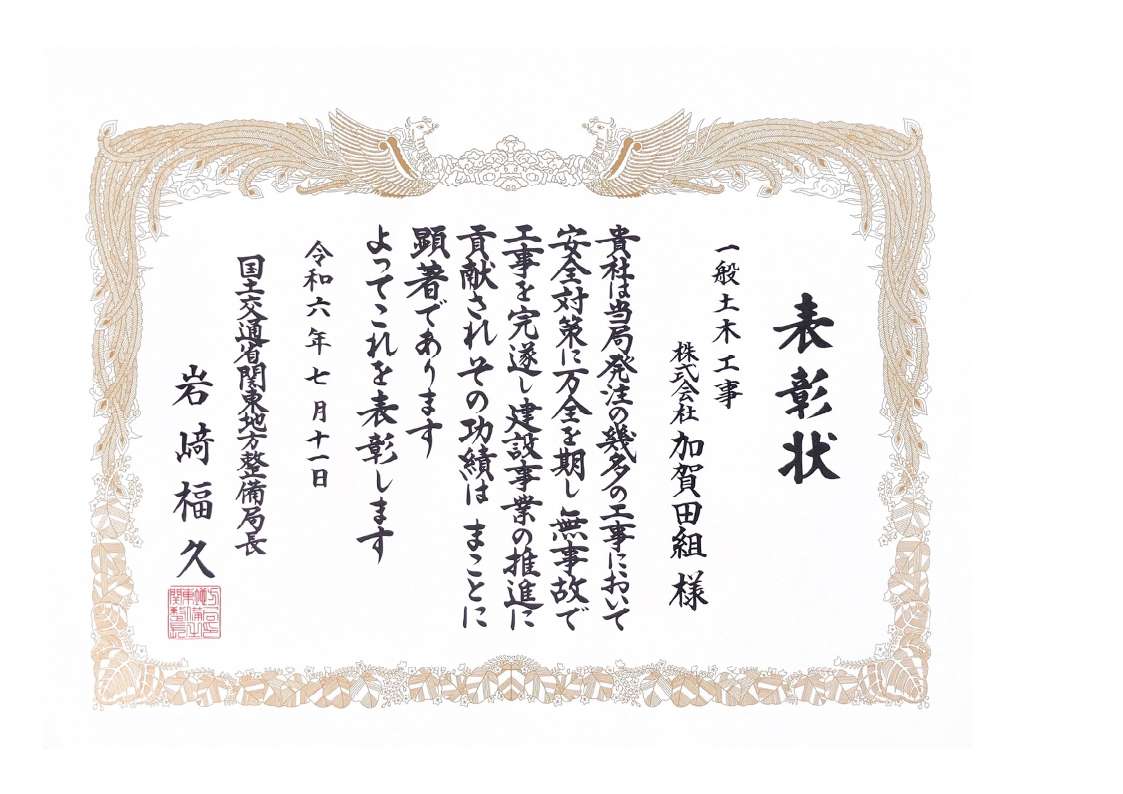 表彰状
一般土木工事
株式会社 加賀田組 様
貴社は当局発注の幾多の工事において
安全対策に万全を期し無事故で
工事を完遂し建設事業の推進に
貢献されその功績は まことに
顕著であります
よってこれを表彰します
令和六年七月十一日
国土交通省関東地方整備局長
岩﨑福久